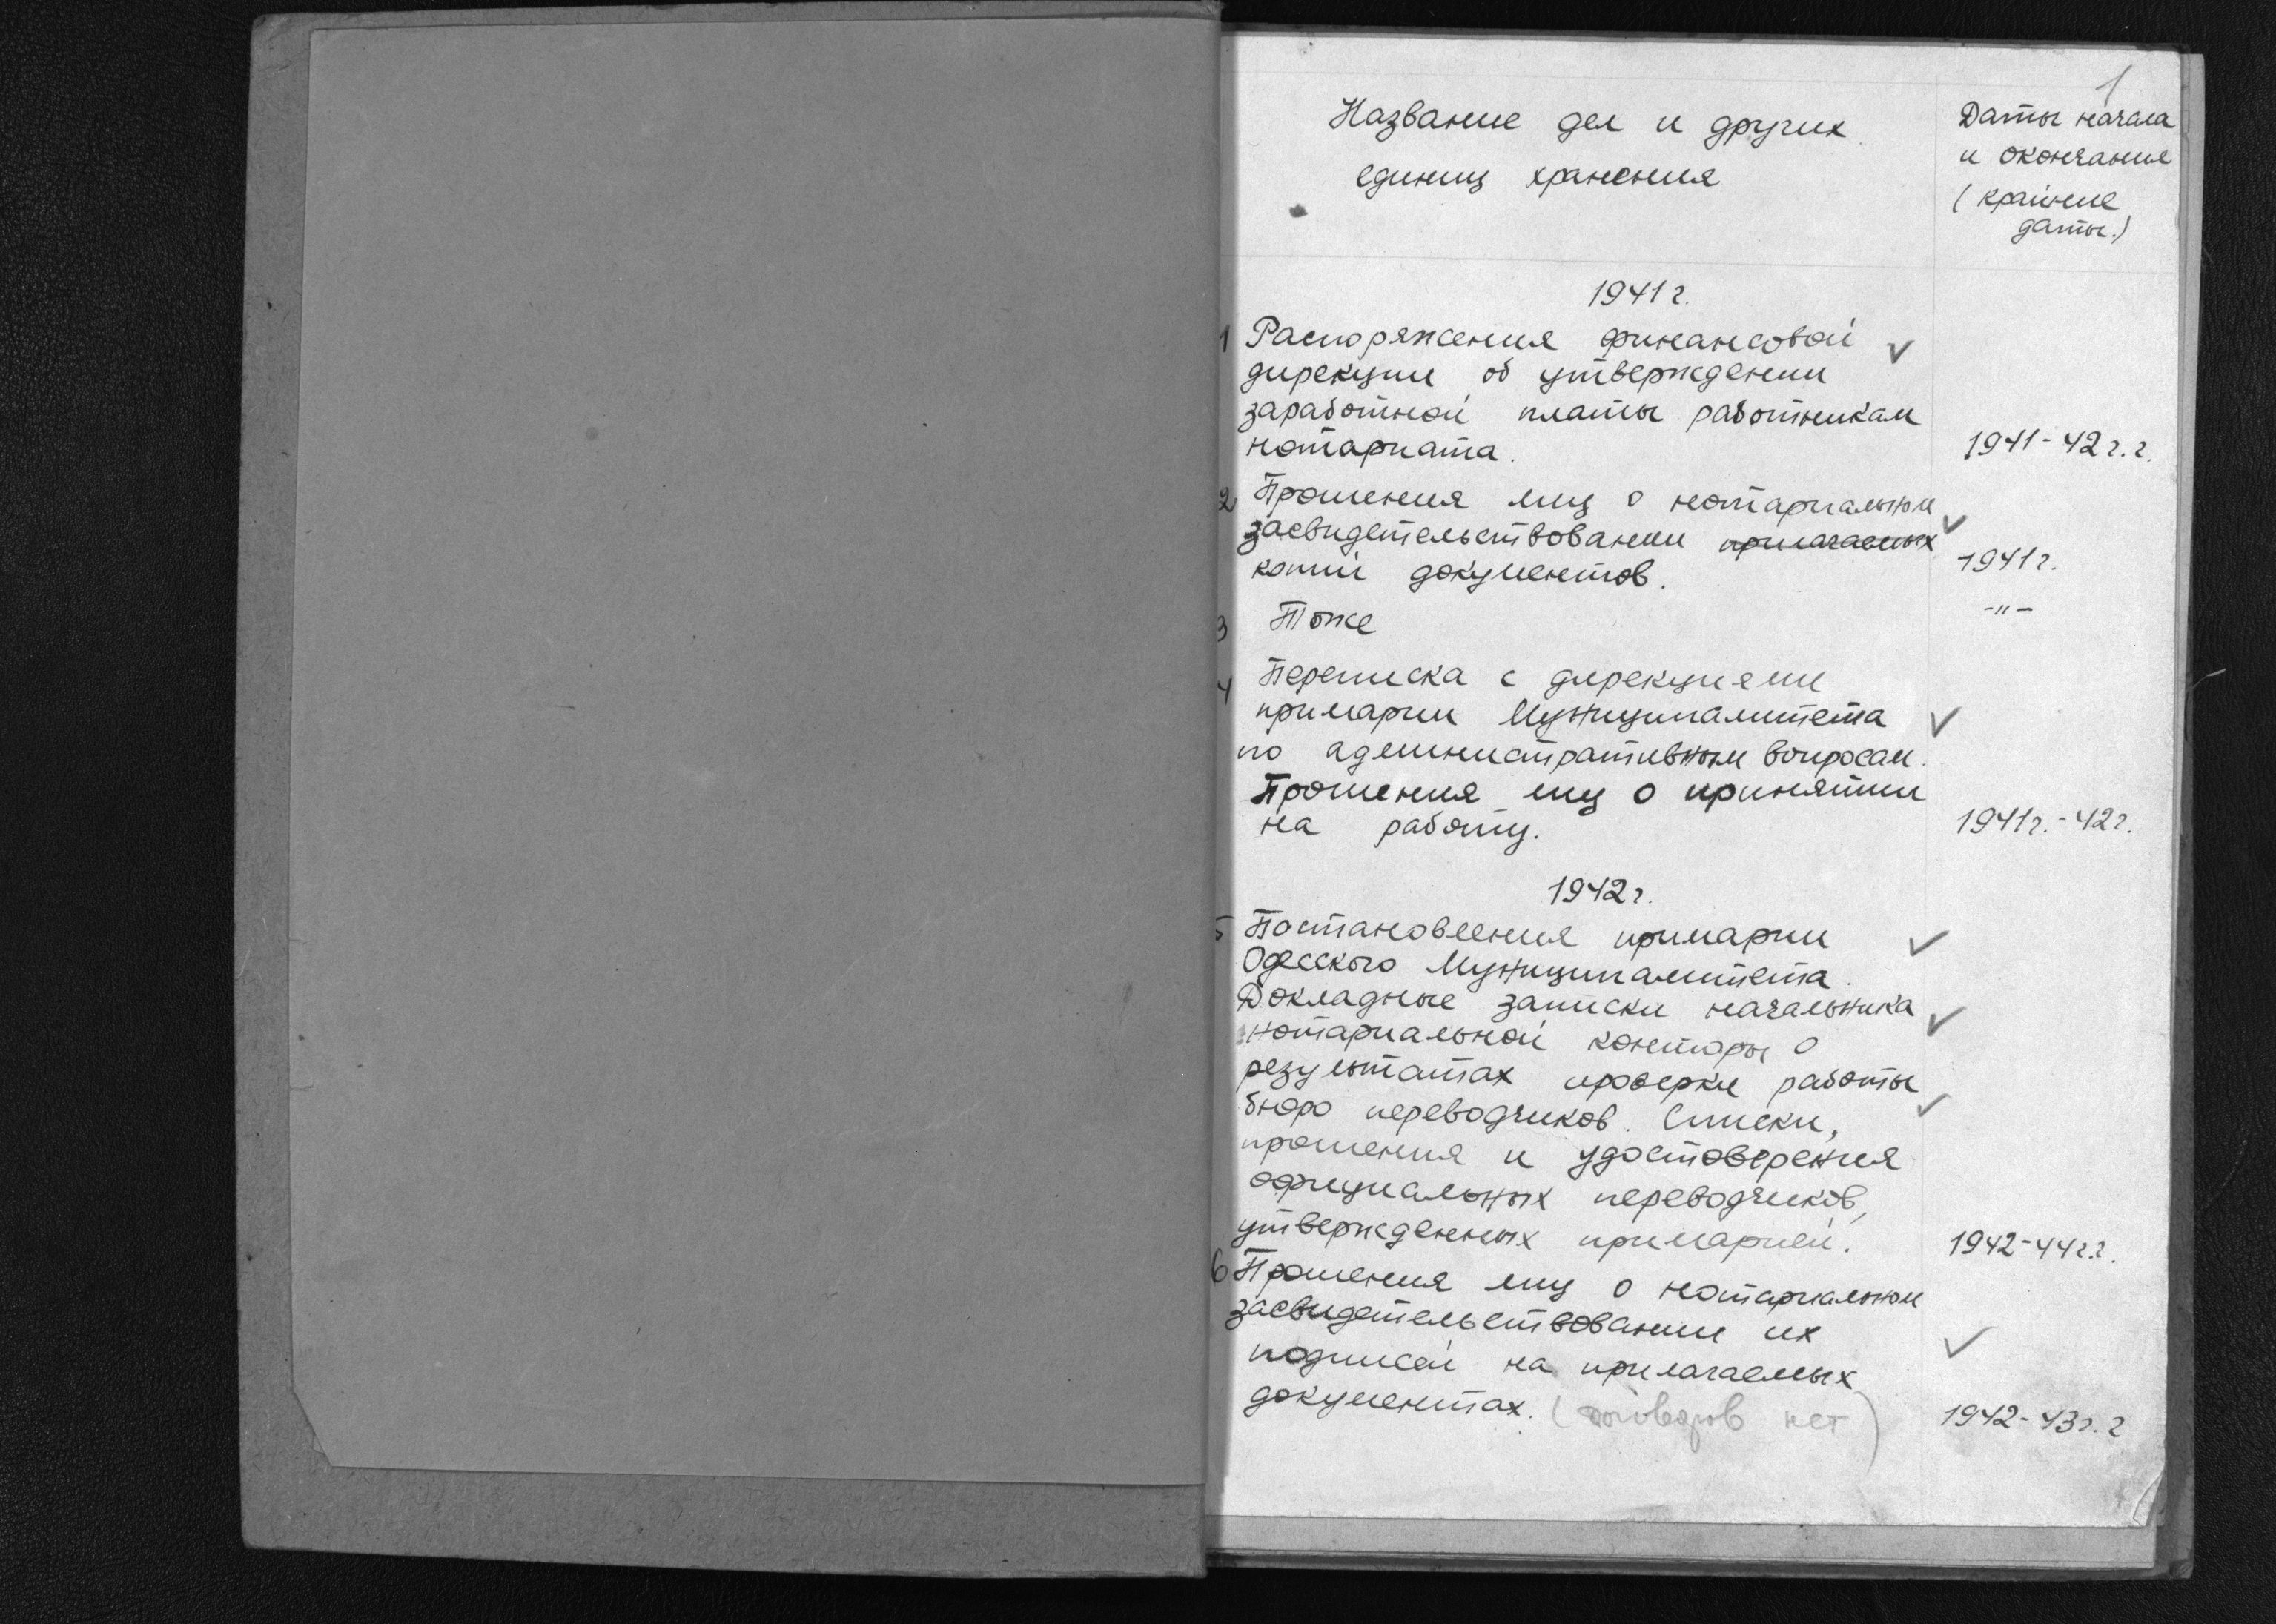 1
Название дел и других
единиц хранения
Даты начала
и окончания
(крайние
даты.)
1941 г.
1 Распоряжения финансовой
дирекции об утверждении
заработной платы работникам
нотариата. 1941-42 г.г.
2 Прошения лиц о нотариальном
засвидетельствовании прилагаемых
копий документов. 1941 г.
3 Тоже -"-
4 Переписка с дирекциями
примарии Муниципалитета
по административным вопросам.
Прошения лиц о принятии
на работу. 1941г.-42г.
1942 г.
5 Постановления примарии
Одесского Муниципалитета.
Докладные записки начальника
нотариальной конторы о
результатах проверки работы
бюро переводчиков. Списки,
прошения и удостоверения
официальных переводчиков,
утвержденных примарией. 1942-44 г.г.
6 Прошения лиц о нотариальном
засвидетельствовании их
подписей на прилагаемых
документах. (договоров нет) 1942-43г.г